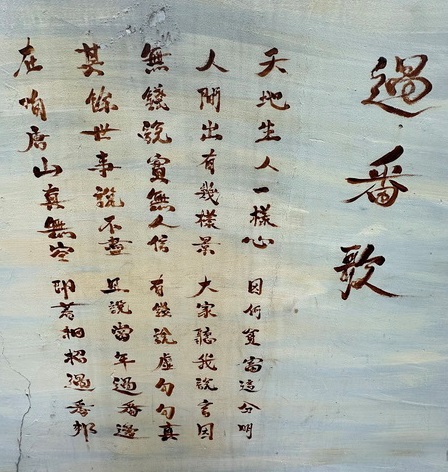 過番歌
天地生人一樣心 因何貧富這分明
人間出有幾樣景 大家聽我說言因
無錢說實無人信 有錢說虛句句真
其餘世事說不盡 且說當年過番邊
在咱唐山真無空 即著相招過番邦